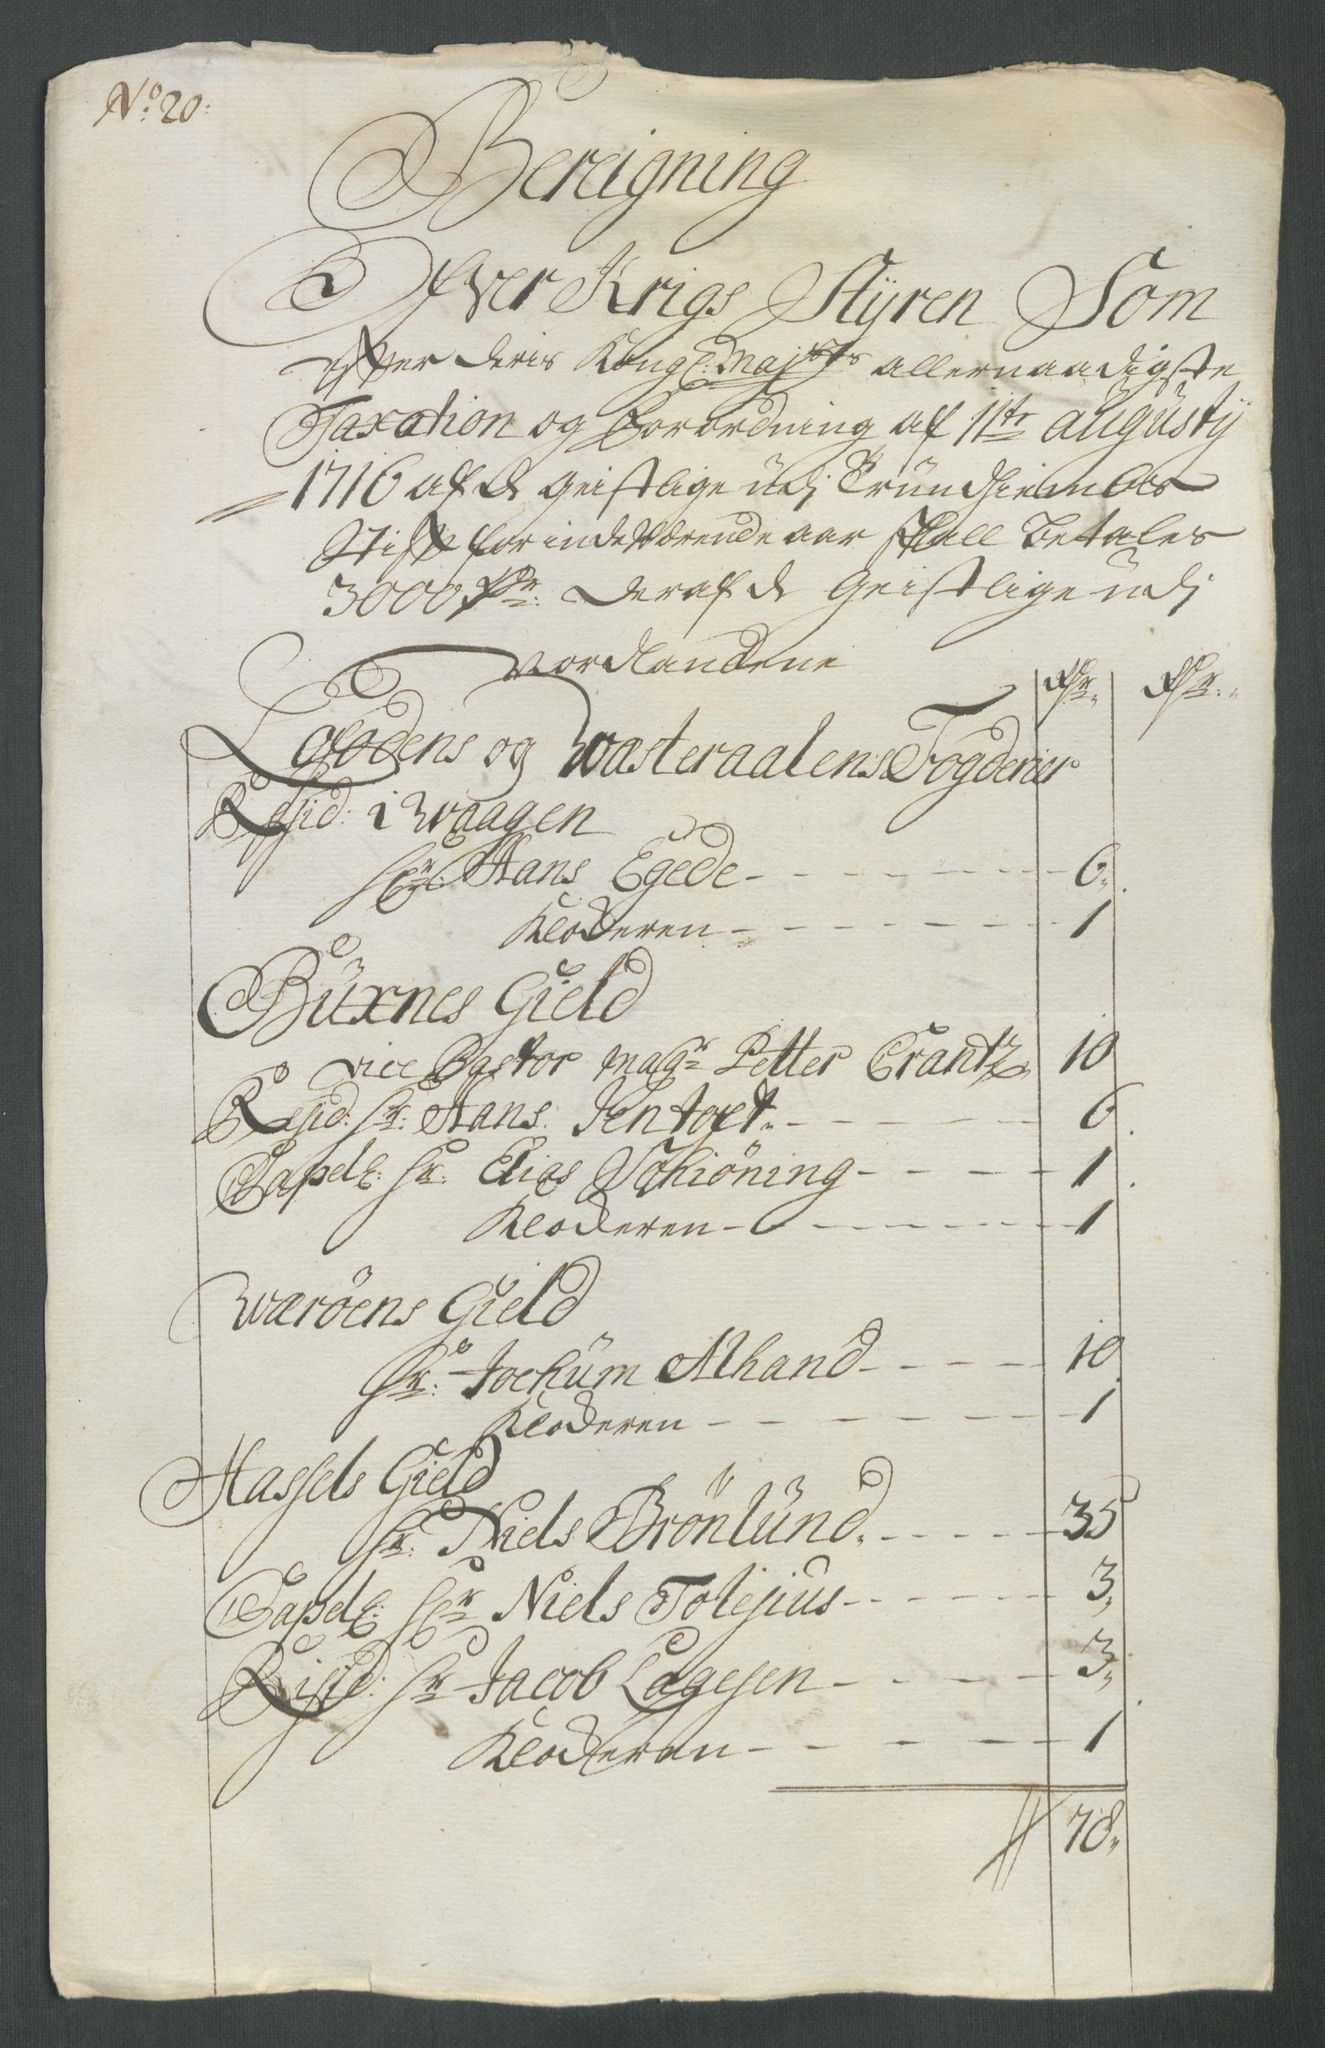 No: 20:
Bereigning
Ofver Krigs Styren Som
efter deris Kongl: Majts allernaadigste
Taxation og Forordning af 11te Augusty
1716 af de geistlige udj Trundhiembs
Stift for indeværende aar skall betales
3000 Rdr: deraf de Geistlige udj
Nordlandene
Rdr. Rdr.
Lofodens og Wæsteraalens Fogderier
Resid: i Waagen
Hr: Hans Egede - 6
Klocheren - 1
Büxnes Gield
vice Pastor Magr Petter Crantz 10
Resid: Hr: Hans Jentoft - 6
Capel: Hr: Elias Schiöning - 1
Klocheren - 1
Wæröens Gield
Hr: Jochum Alhand - 10
Klocheren - 1
Hassels Gield
Hr: Niels Brönlünd - 35
Capel: Hr Niels Tolesius - 3
Resid: Hr Jacob Lagesen - 3
Klocheren - 1
78